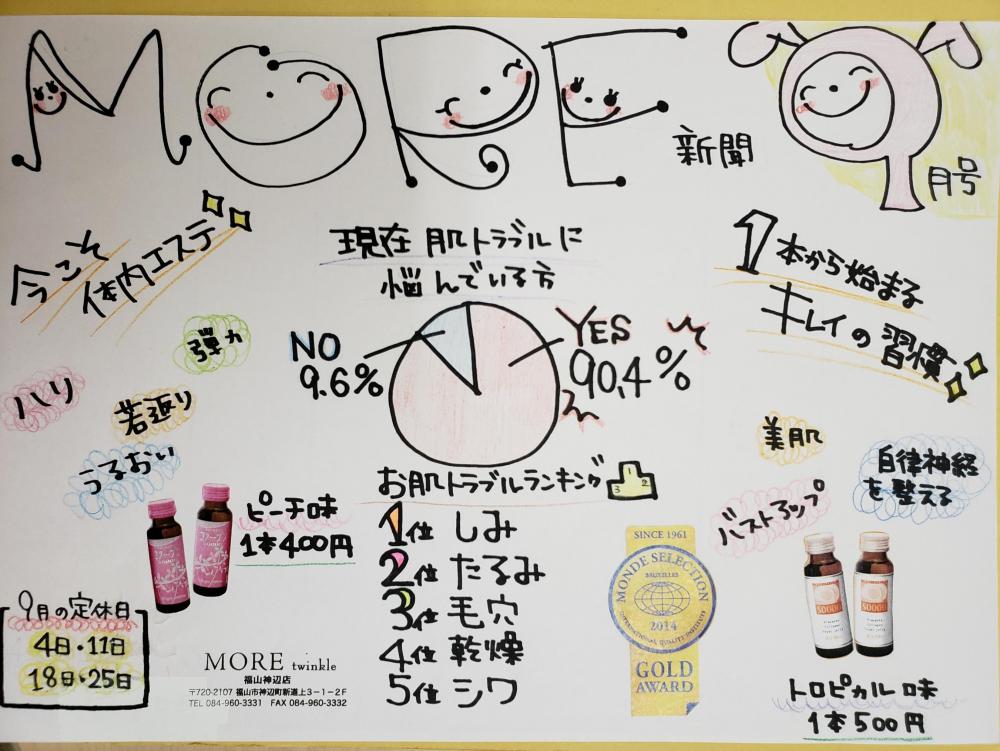 MORE 新聞 9月号
今こそ
体内エステ
弾力
ハリ
若返り
うるおい
ピーチ味
1本400円
9月の定休日
4日・11日
18日・25日
現在 肌トラブルに
悩んでいる方
NO
9.6%
YES
90.4%
お肌トラブルランキング
1位 しみ
2位 たるみ
3位 毛穴
4位 乾燥
5位 シワ
MORE twinkle
福山神辺店
〒720-2107 福山市神辺町新道上3-1-2F
TEL 084-960-3331 FAX 084-960-3332
SINCE 1961
MONDE SELECTION
BRUXELLES
2014
INTERNATIONAL QUALITY INSTITUTE
GOLD
AWARD
1本から始まる
キレイの習慣
美肌
自律神経
を整える
バストアップ
トロピカル味
1本500円